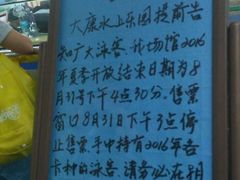 大康水上乐园提前告
知广大泳客，外场馆2016
年夏季开放结束日期为8
月31号下午4点30分。售票
窗口8月31日下午3点停
止售票。手中持有2016年各
卡种的泳客，请务必在8月